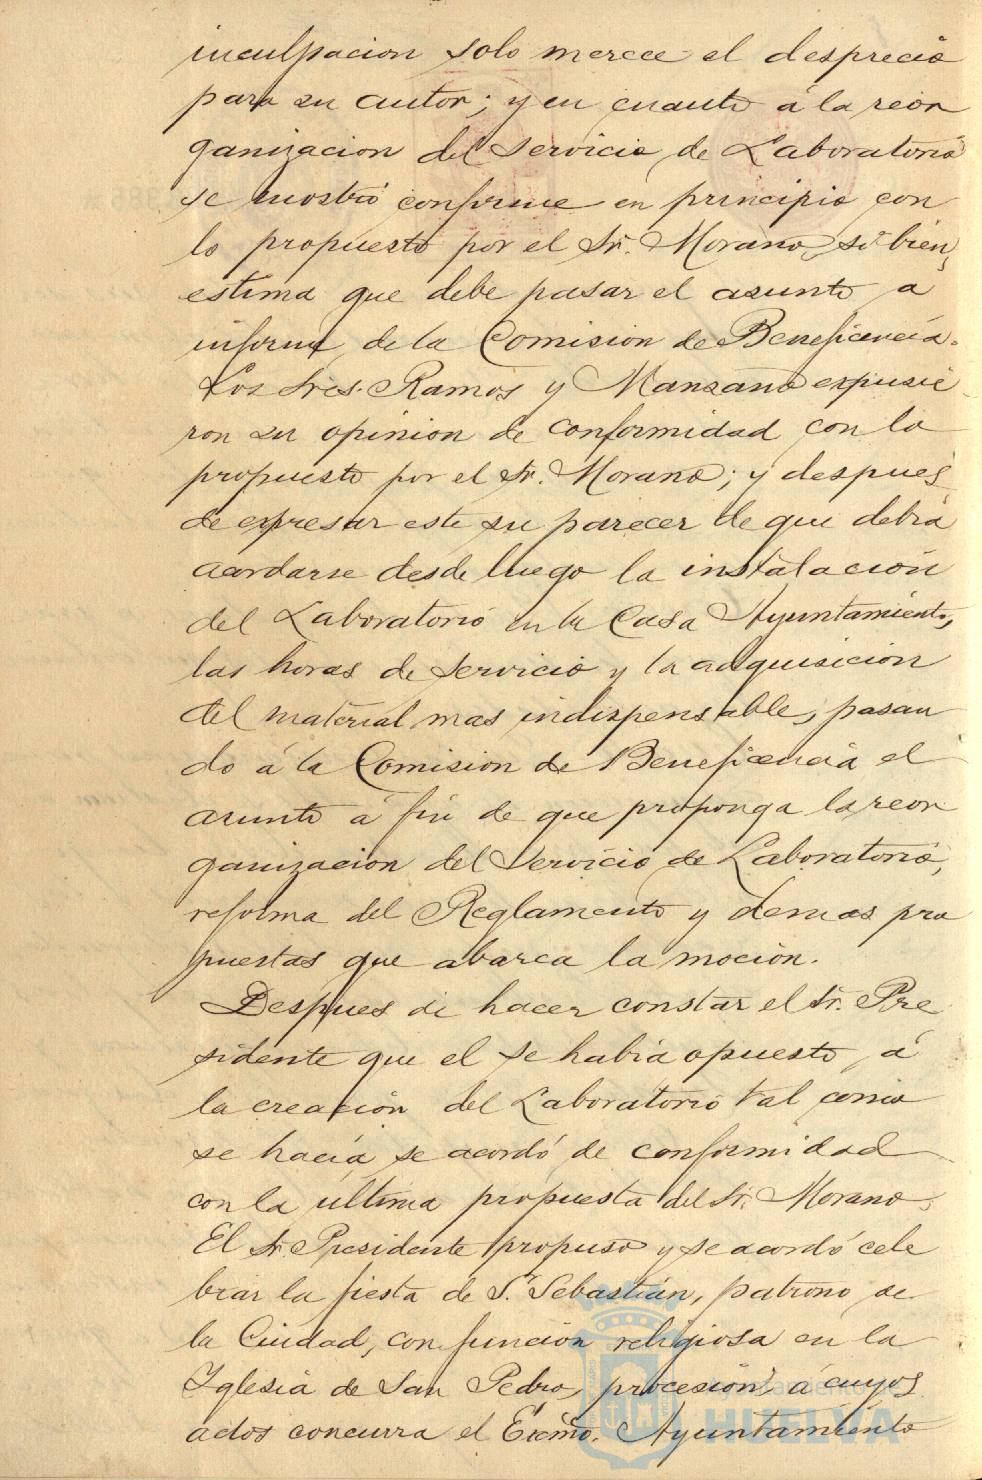 inculpacion solo merece el desprecio
para su autor; y en cuanto á la reor
ganizacion del servicio de Laboratorio
se mostró conforme en principio con
lo propuesto por el Sr. Morano, si bien,
estima que debe pasar el asunto a
informe de la Comision de Beneficencia.
Los Sres. Ramos y Manzano expusie
ron su opinion de conformidad con lo
propuesto por el Sr. Morano; y despues
de expresar este su parecer de que debia
acordarse desde luego la instalacion
del Laboratorio en la Casa Ayuntamiento,
las horas de servicio y la adquisicion
del material mas indispensable, pasan
do á la Comision de Beneficencia el
asunto á fin de que proponga la reor
ganizacion del servicio de Laboratorio,
reforma del Reglamento y demas pro
puestas que abarca la mocion.
Despues de hacer constar el Sr. Pre
sidente que el se habia opuesto á
la creación del Laboratorio tal como
se hacía, se acordó de conformidad
con la última propuesta del Sr. Morano.
El Sr. Presidente propuso y se acordó cele
brar la fiesta de S. Sebastián, patrono de
la Ciudad, con función religiosa en la
Iglesia de San Pedro, procesión, á cuyos
actos concurra el Excmo. Ayuntamiento
Ayuntamiento de
HUELVA